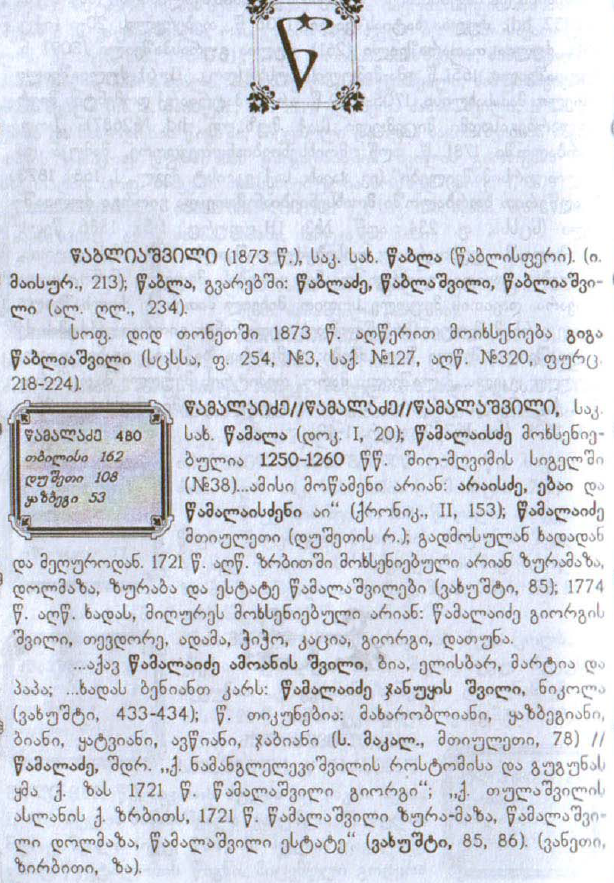 წ
წაბლიაშვილი (1873 წ.), საკ. სახ. წაბლა (წაბლისფერი). (ი.
მაისურ., 213); წაბლა, გვარებში: წაბლაძე, წაბლაშვილი, წაბლიაშვი-
ლი (ალ. ღლ., 234).
სოფ. დიდ თონეთში 1873 წ. აღწერით მოიხსენიება გიგა
წაბლიაშვილი (სცსსა, ფ. 254, №3, საქ. №127, აღწ. №320, ფურც.
218-224).
წამალაძე 480
თბილისი 162
დუშეთი 108
ყაზბეგი 53
წამალაიძე//წამალაძე//წამალაშვილი, საკ.
სახ. წამალა (დოკ. I, 20); წამალაისძე მოხსენიე-
ბულია 1250-1260 წწ. შიო-მღვიმის სიგელში
(№38)...ამისი მოწამენი არიან: არაისძე, ებაი და
წამალაისძენი აი“ (ქრონიკ., II, 153); წამალაიძე
მთიულეთი (დუშეთის რ.); გადმოსულან ხადადან
და მეღუროდან. 1721 წ. აღწ. ზრბითში მოხსენიებული არიან ზურამაზა,
დოლმაზა, ზურაბა და ესტატე წამალაშვილები (ვახუშტი, 85); 1774
წ. აღწ. ხადას, მიღურეს მოხსენიებული არიან: წამალაიძე გიორგის
შვილი, თევდორე, ადამა, ჭიჭო, კაცია, გიორგი, დათუნა.
...აქავ წამალაიძე ამოანის შვილი, ბია, ელისბარ, მარტია და
პაპა; ...ხადას ბენიანთ კარს: წამალაიძე ჯანუყის შვილი, ნიკოლა
(ვახუშტი, 433-434); წ. თიკუნებია: მახარობლიანი, ყაზბეგიანი,
ბიანი, ყატვიანი, ავწიანი, ჯაბიანი (ს. მაკალ., მთიულეთი, 78) //
წამალაძე, შდრ. „ქ. ნამანგლელევიშვილის როსტომისა და გუგუნას
ყმა ქ. ზას 1721 წ. წამალაშვილი გიორგი“; „ქ. თულაშვილის
ასლანის ქ. ზრბითს, 1721 წ. წამალაშვილი ზურა-მაზა, წამალაშვი-
ლი დოლმაზა, წამალაშვილი ესტატე“ (ვახუშტი, 85, 86). (ვანეთი,
ზირბითი, ზა).